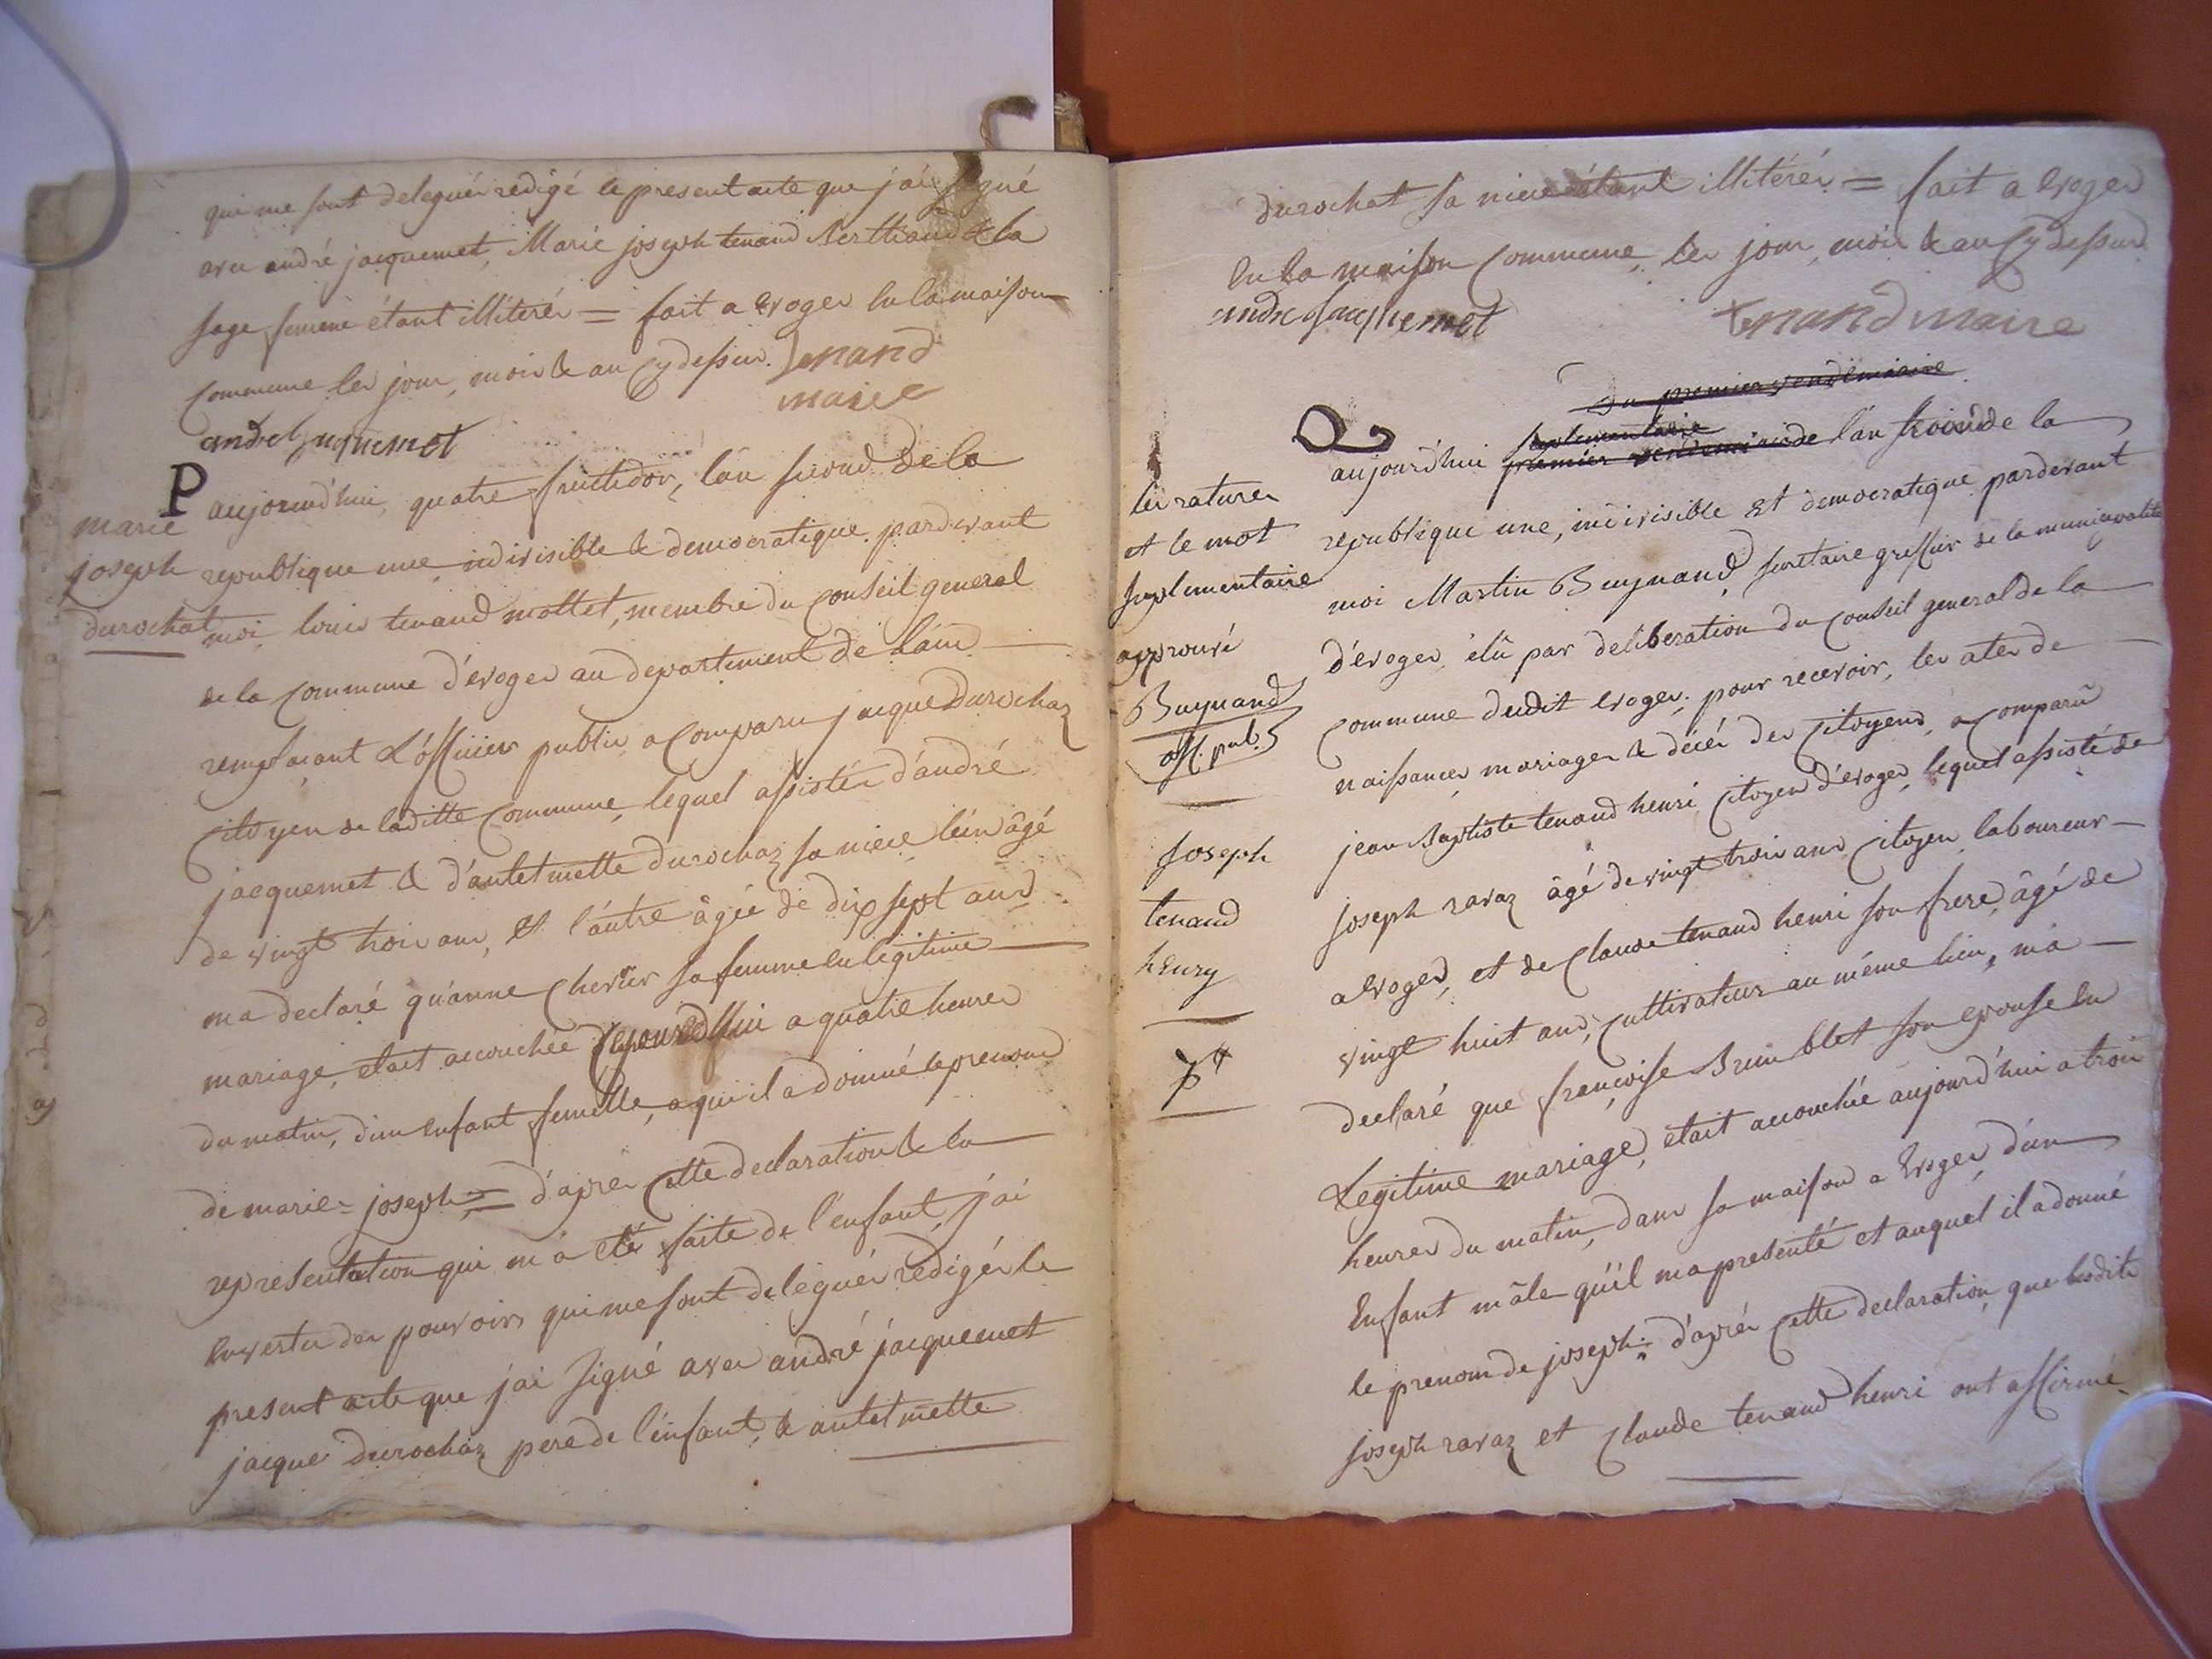 qui me sont deleguér redigé le present acte que j'ai signé
avec andré jacquemet, Marie joseph tenand Berthaud & la
sage femme étant illitérér = fait a evoger en la maison
commune les jour, mois & an cy dessus. tenand
maire
andre Jaquemet
P
marie
joseph
durochat
aujourd'hui, quatre fructidor, l'an second de la
republique une, indivisible & democratique, pardevant
moi, louis tenand mottet, membre du conseil general
de la commune d'évoger au departement de l'ain
remplaçant l'officier public, a comparu jacque Durochaz
citoyen de laditte commune, lequel assistér d'andré
jacquemet & d'antelmette durochaz sa niece l'un âgé
de vingt trois ans, et l'autre âgée de dix sept ans
m'a declaré qu'anne chervier sa femme en legitime
mariage, etait accouchée aujourd'hui a quatre heures
du matin, d'un enfant femelle, a qui il a donné le prenom
de marie = joseph = d'après cette declaration & la
representation qui m'a été faite de l'enfant, j'ai
en vertu des pouvoirs qui me sont deleguér redigér le
present acte que j'ai signé avec andré jacquemet
jacque Durochaz pere de l'énfant, & antelmette
durochat sa niece étant illitérér = fait a evoger
en la maison commune, les jour, mois & an cy dessus
andre Jacquemet tenand maire
du premier vendemiaire
les rature
et le mot
suplementaire
approuvé
Buynand
off. pub.
Joseph
tenand
henry
suplementaire
aujourd'hui premier vendemiaire de l'an second de la
republique une, indivisible et democratique pardevant
moi Martin Buynand, secretaire greffier de la municipalité
d'évoger, élû par deliberation du conseil general de la
commune dudit evoger, pour recevoir, les ates de
naissances, mariages & décér des citoyens, a comparû
jean Baptiste tenand henri citoyen d'évoger, lequel assisté de
joseph ravaz âgé de vingt trois ans citoyen laboureur
a evoger, et de claude tenand henri son frere, âgé de
vingt huit ans, cultivateur au même lieu, m'a
declaré que françoise Brun blet son epouse en
Legitime mariage, etait accouchée aujourd'hui a trois
heures du matin, dans sa maison a Evoger, d'un
Enfant mâle qu'il m'a presenté et auquel il a donné
le prenom de joseph = d'après cette declaration, que lesdits
joseph ravaz et claude tenand henri ont affirmé